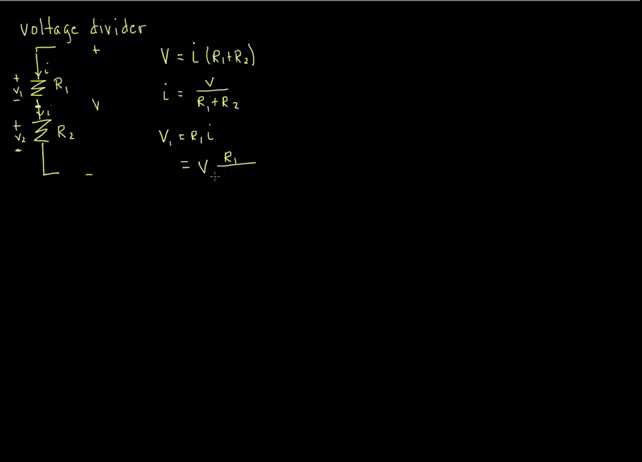 voltage divider
+
i
+
V₁
-
R₁
V
i
+
V₂
-
R₂
-
V = i (R₁+R₂)
i = V / R₁+R₂
V₁ = R₁ i
= V R₁